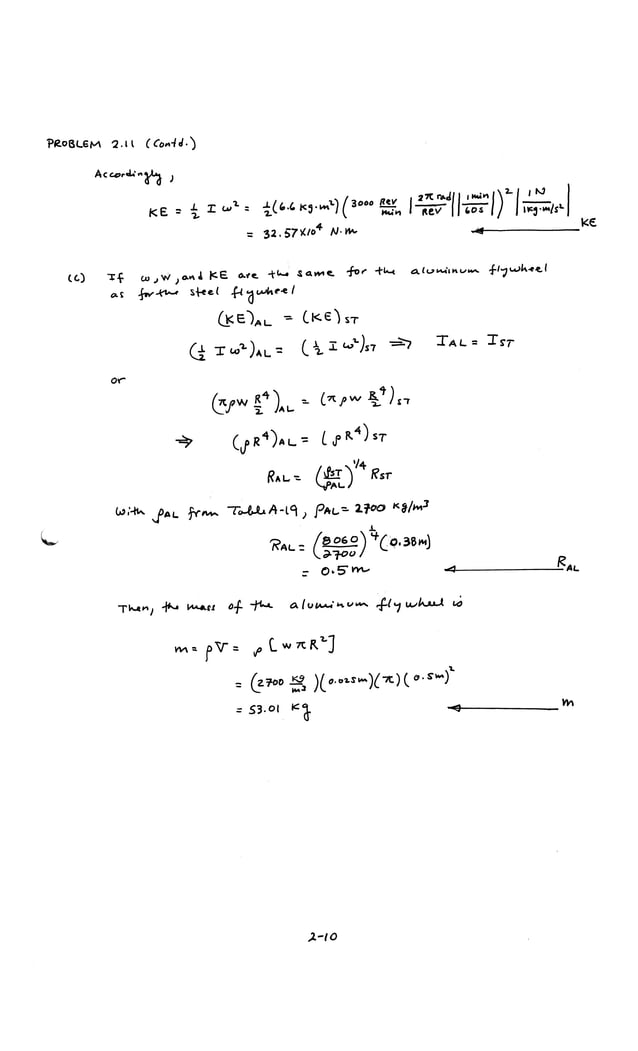 PROBLEM 2.11 (Contd.)
Accordingly,
KE = 1/2 I ω² = 1/2 (6.6 kg·m²) (3000 Rev/min |2π rad/Rev||1 min/60s|)² |1N/1kg·m/s²|
= 32.57×10⁴ N·m
KE
(c) If ω, w, and KE are the same for the aluminum flywheel
as for the steel flywheel
(KE)AL = (KE)ST
(1/2 I ω²)AL = (1/2 I ω²)ST ⇒ IAL = IST
or
(πρw R⁴/2)AL = (πρw R⁴/2)ST
⇒ (ρR⁴)AL = (ρR⁴)ST
RAL = (ρST/ρAL)^1/4 RST
With ρAL from Table A-19, ρAL = 2700 kg/m³
RAL = (8060/2700)^1/4 (0.38m)
= 0.5 m
RAL
Then, the mass of the aluminum flywheel is
m = ρV = ρ[wπR²]
= (2700 kg/m³)(0.025m)(π)(0.5m)²
= 53.01 kg
m
2-10